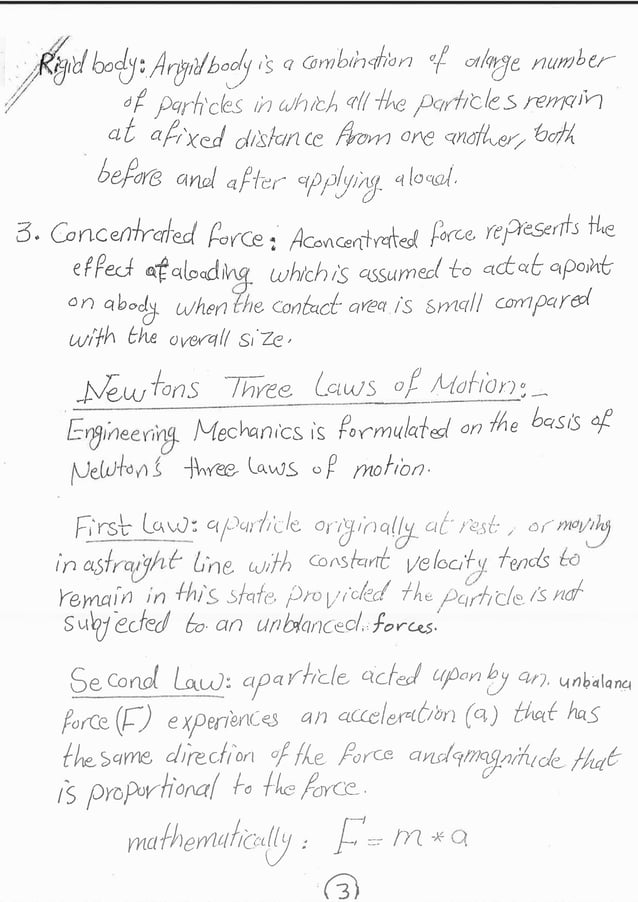 Rigid body: A rigid body is a combination of a large number
of particles in which all the particles remain
at a fixed distance from one another, both
before and after applying a load.
3. Concentrated force: A concentrated force represents the
effect of a loading which is assumed to act at a point
on a body when the contact area is small compared
with the overall size.
Newtons Three Laws of Motion:-
Engineering Mechanics is formulated on the basis of
Newton's three laws of motion.
First Law: a particle originally at rest, or moving
in a straight line with constant velocity tends to
remain in this state provided the particle is not
subjected to an unblanced forces.
Second Law: a particle acted upon by an unbalanc
force (F) experiences an acceleration (a) that has
the same direction of the force and a magnitude that
is proportional to the force.
mathematically: F = m * a
3